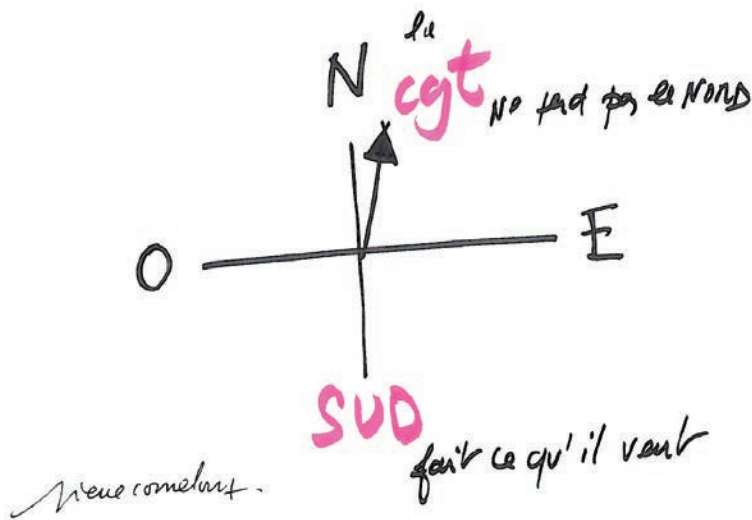 la
N
cgt ne perd pas le NORD
O
E
SUD
fait ce qu'il veut